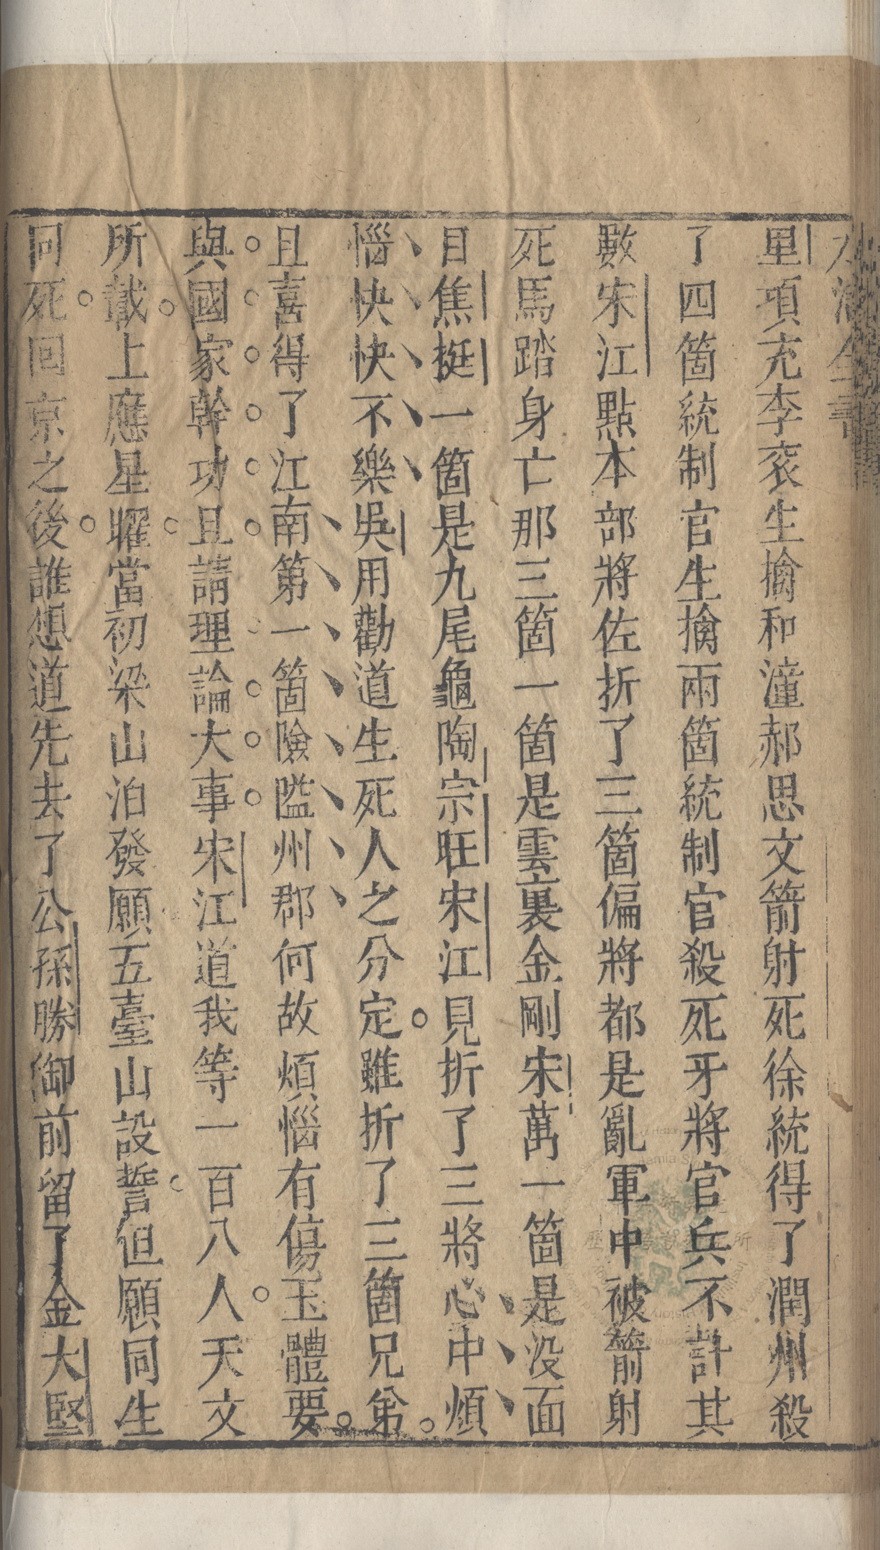 水滸全書
星項充李袞生擒和潼郝思文箭射死徐統得了潤州殺
了四箇統制官生擒兩箇統制官殺死牙將官兵不計其
數宋江點本部將佐折了三箇偏將都是亂軍中被箭射
死馬踏身亡那三箇一箇是雲裏金剛宋萬一箇是没面
目焦挺一箇是九尾龜陶宗旺宋江見折了三將心中煩
惱怏怏不樂吳用勸道生死人之分定雖折了三箇兄弟
且喜得了江南第一箇險隘州郡何故煩惱有傷玉體要
與國家幹功且請理論大事宋江道我等一百八人天文
所載上應星曜當初梁山泊發願五臺山設誓但願同生
同死回京之後誰想道先去了公孫勝御前留了金大堅